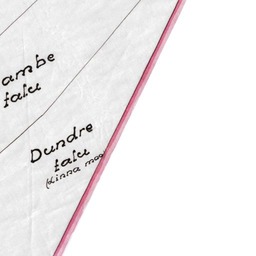 ambe
falu
Dundre
falu
(Linna moo